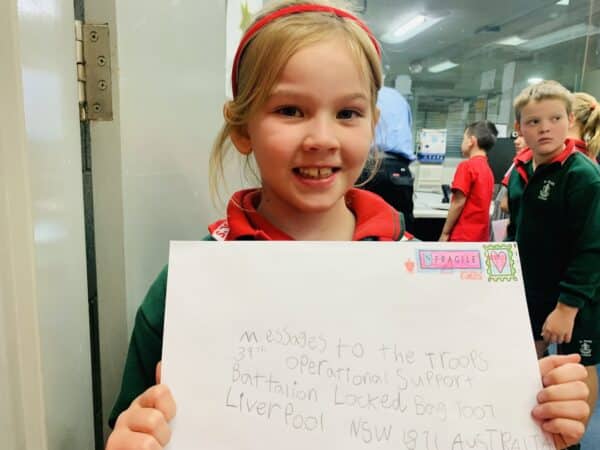 FRAGILE
Messages to the Troops
39th operational Support
Battalion Locked Bag 7007
Liverpool NSW 1871 AUSTRALIA